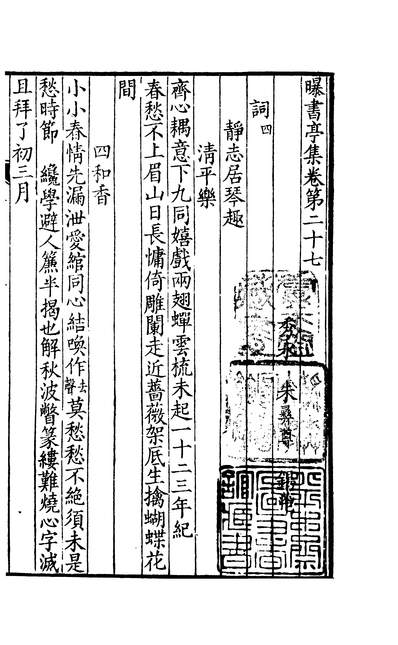 曝書亭集卷第二十七
秀水　朱彝尊　錫鬯
詞四
靜志居琴趣
清平樂
齊心耦意下九同嬉戲兩翅蟬雲梳未起一十二三年紀
春愁不上眉山日長慵倚雕闌走近薔薇架底生擒蝴蝶花
間
四和香
小小春情先漏泄愛綰同心結喚作去聲莫愁愁不絕須未是
愁時節　纔學避人簾半揭也解秋波瞥篆縷難燒心字滅
且拜了初三月